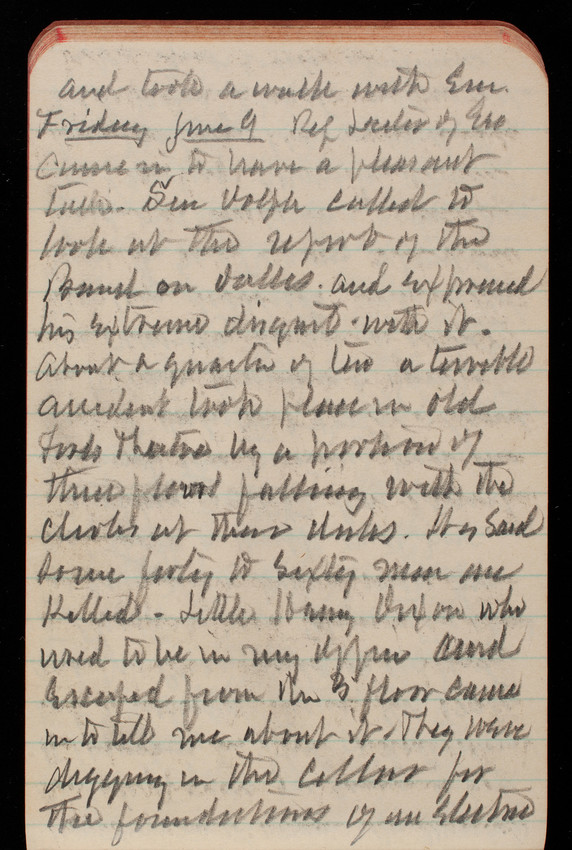 and took a walk with Em.
Friday June 9 Rep of
came in to have a pleasant
talk. Sen Dolph called to
look at the report of the
Board on Dalles. and expressed
his extreme disgust with it.
About a quarter of ten a terrible
accident took place in old
Fords Theatre by a portion of
three floors falling with the
clerks at their desks. It is said
some forty to sixty men are
killed - Little Harry Dixon who
used to be in my office and
escaped from the 3 floor came
in to tell me about it. They were
digging in the cellar for
the foundations of an Electric